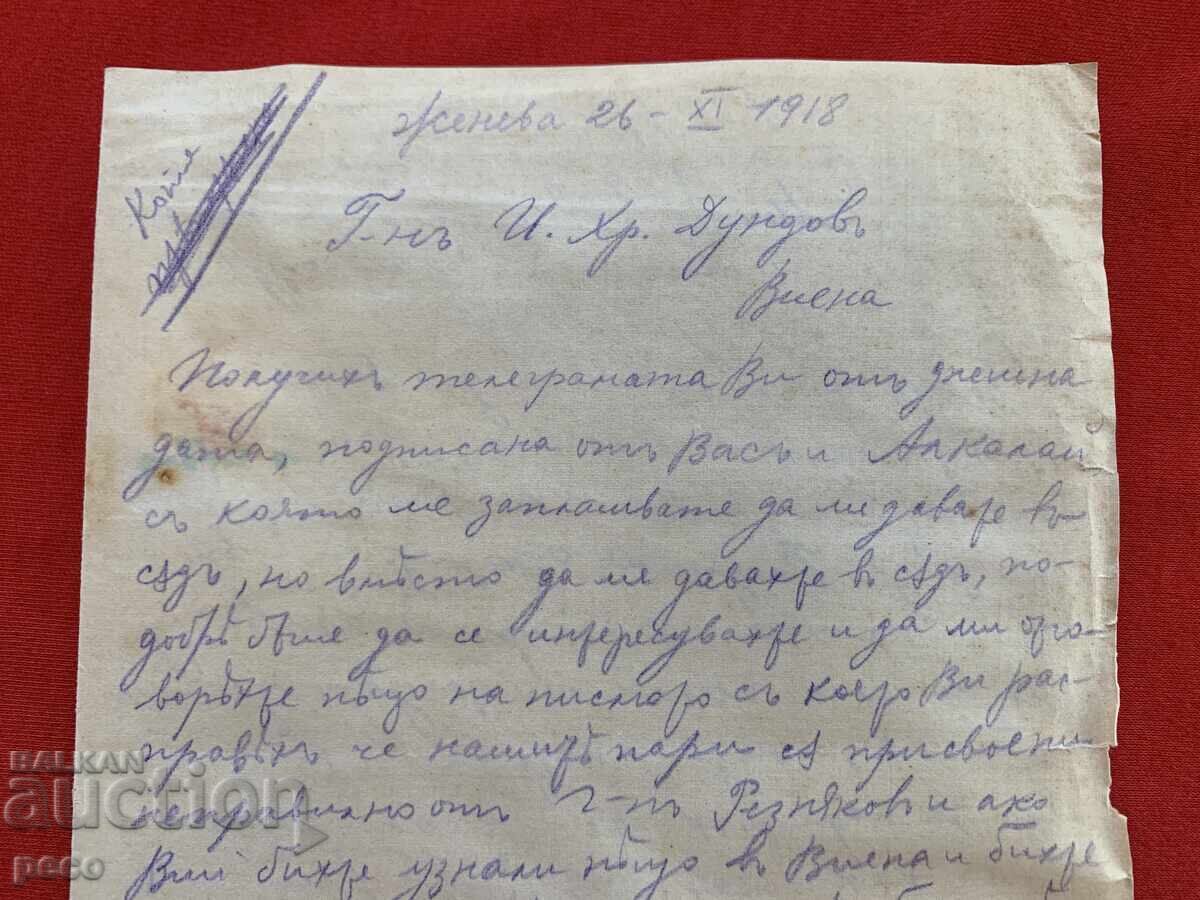 Женева 26 – XI 1918
Копие
Г-нъ И. Хр. Дундовъ
Виена
Получихъ телеграмата Ви отъ днешна
дата, подписана отъ Васъ и Алкалай
съ която ме заплашвате да ме давате въ
сѫдъ, но вмѣсто да ме давахте въ сѫдъ, по-
добрѣ бѣше да се интересувахте и да ми отго-
ворѣхте нѣщо на писмото съ което Ви рас-
правѣхъ че нашитѣ пари сѫ присвоени
неправилно отъ г-нъ Резняковъ и ако
Вий бихте узнали нѣщо въ Виена и бихте
BALKAN
auction
peco